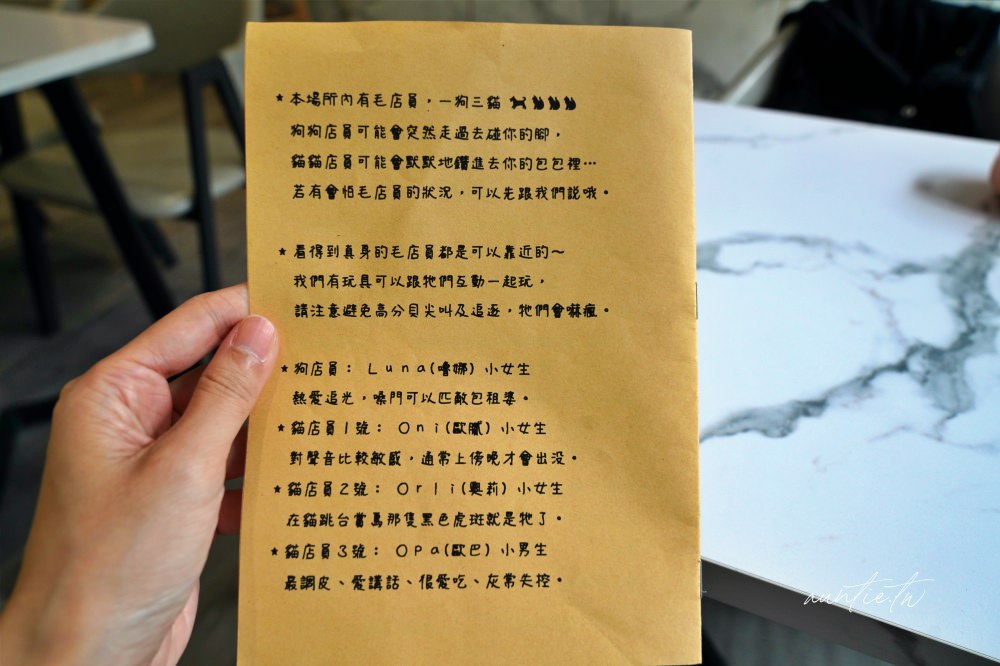 ★本場所內有毛店員，一狗三貓
狗狗店員可能會突然走過去碰你的腳，
貓貓店員可能會默默地鑽進去你的包包裡…
若有會怕毛店員的狀況，可以先跟我們說哦。
★看得到真身的毛店員都是可以靠近的～
我們有玩具可以跟牠們互動一起玩，
請注意避免高分貝尖叫及追逐，牠們會嚇瘋。
★狗店員：Luna(嚕娜)小女生
熱愛追光，嗓門可以匹敵包租婆。
★貓店員1號：Oni(歐膩)小女生
對聲音比較敏感，通常上傍晚才會出沒。
★貓店員2號：Orli(奧莉)小女生
在貓跳台賞鳥那隻黑色虎斑就是牠了。
★貓店員3號：OPa(歐巴)小男生
最調皮、愛講話、很愛吃、灰常失控。
auntie.tw